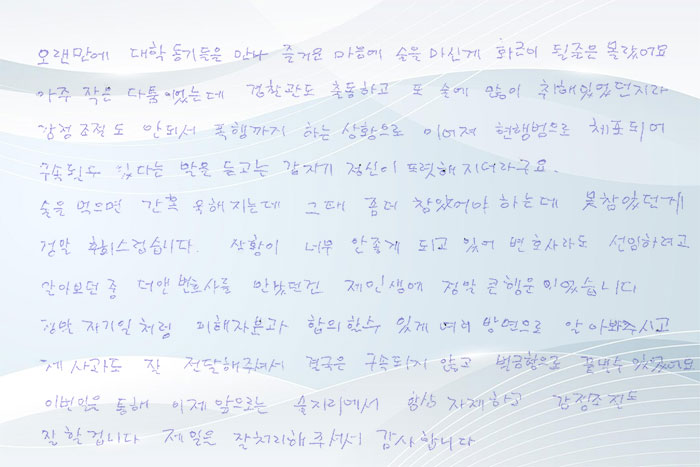 오랜만에 대학 동기들을 만나 즐거운 마음에 술을 마신게 화근이 될줄은 몰랐어요
아주 작은 다툼이었는데 경찰관도 출동하고 또 술에 많이 취해있었던지라
감정조절도 안되서 폭행까지 하는 상황으로 이어져 현행범으로 체포되어
구속될수 있다는 말을 듣고는 갑자기 정신이 또렷해지더라구요.
술을 먹으면 간혹 욱해지는데 그때 좀더 참았어야 하는데 못참았던게
정말 후회스럽습니다. 상황이 너무 안좋게 되고 있어 변호사라도 선임하려고
알아보던 중 더앤 변호사를 만났던건 제인생에 정말 큰행운이었습니다
정말 자기일처럼 피해자분과 합의할수 있게 여러 방면으로 알아봐주시고
제 사과도 잘 전달해주셔서 결국은 구속되지 않고 벌금형으로 끝낼수 있었어요
이번일을 통해 이제 앞으로는 술자리에서 항상 자제하고 감정조절도
잘할겁니다 제일을 잘처리해주셔서 감사합니다